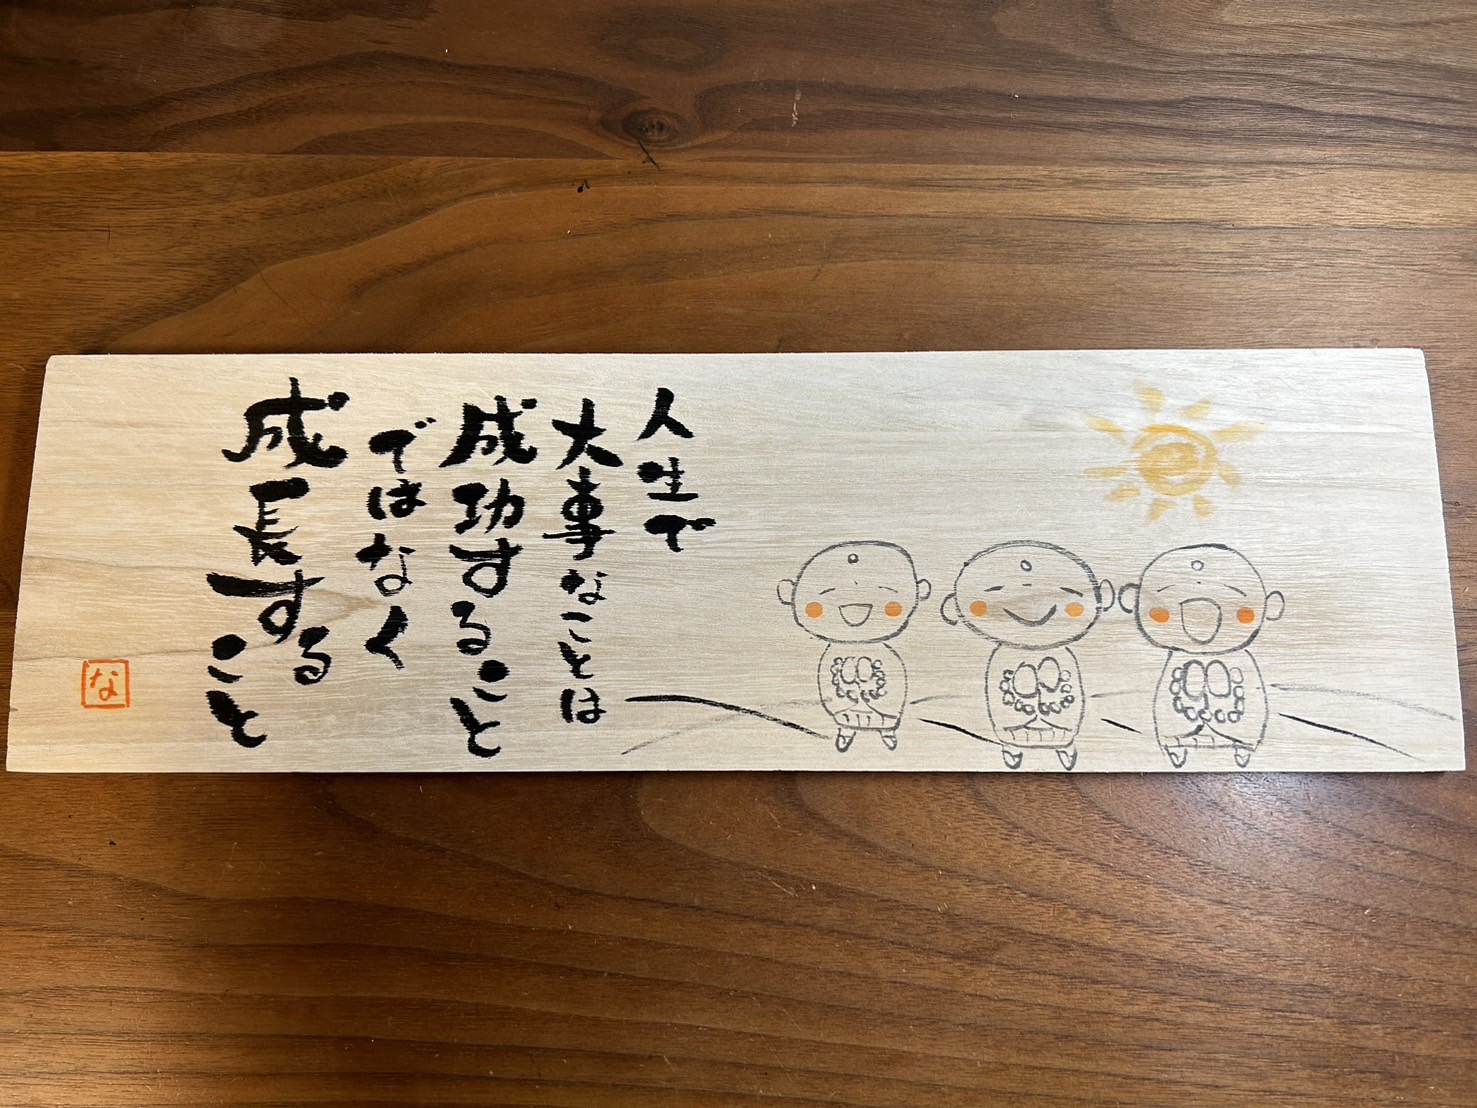 人生で
大事なことは
成功すること
ではなく
成長する
こと
な